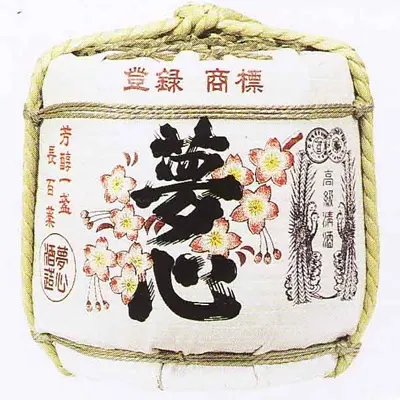 登録 商標
夢心
芳醇一盞
長百薬
夢心
酒造
高級清酒